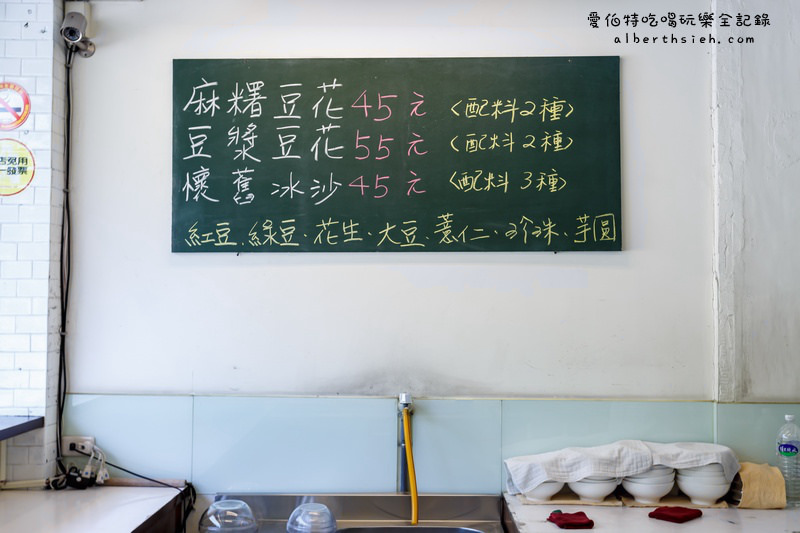 愛伯特吃喝玩樂全記錄
alberthsieh.com
麻糬豆花45元〈配料2種〉
豆漿豆花55元〈配料2種〉
懷舊冰沙45元〈配料3種〉
紅豆、綠豆、花生、大豆、薏仁、珍珠、芋圓
店免用
一發票